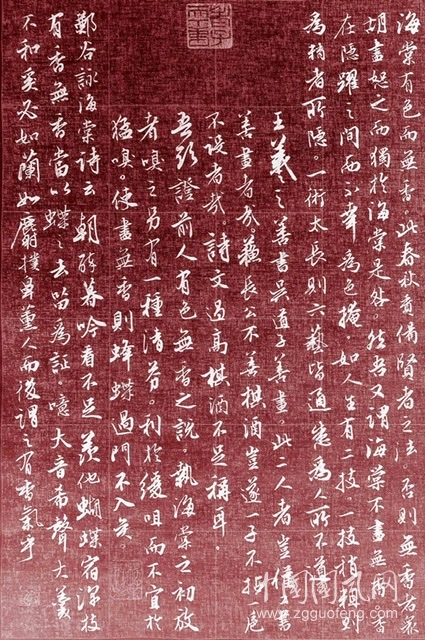 海棠有色而無香。此春秋責備賢者之法 否則無香者衆
胡盡恕之而獨於海棠是咎。然吾又謂海棠不盡無香。香
在隱躍之間而不幸為色掩。如人生有二技。一技稍粗則
為精者所隱。一術太長則六藝皆通悉為人所不道
王羲之善書吳道子善畫。此二人者豈僅書
善畫者哉。蘇長公不善棋酒豈遂一子不拈一卮
不設者哉 詩文過高棋酒不足稱耳。
吾欲證前人有色無香之說。執海棠之初放
者嗅之另有一種清芬。利於緩咀而不宜於
猛嗅。使盡無香則蜂蝶過門不入矣。
鄭谷詠海棠詩云 朝醉暮吟看不足 羨他蝴蝶宿深枝
有香無香當以蝶之去留為証。噫 大音希聲 大羹
不和奚必如蘭如麝撲鼻薰人而後謂之有香氣乎
中國國風网
www.zgguofeng.com